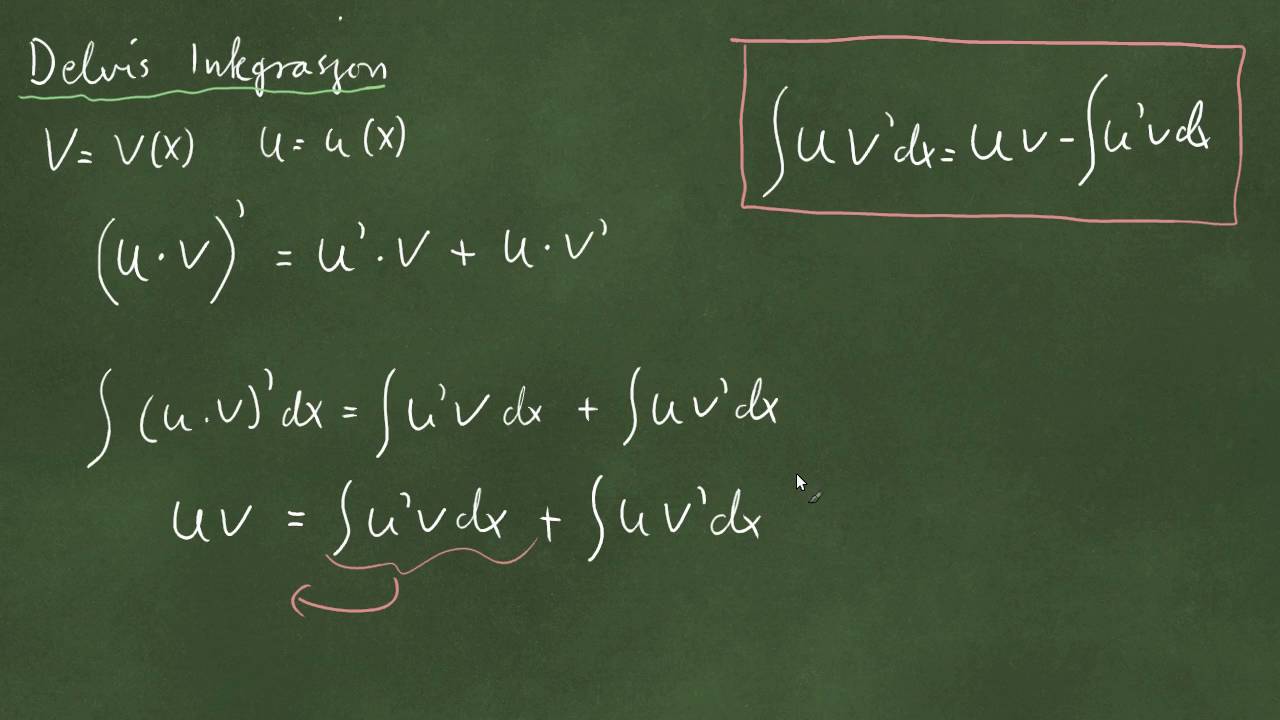 Delvis Integrasjon
V = v(x) u = u(x)
∫ u v' dx = u v - ∫ u' v dx
(u · v)' = u' · v + u · v'
∫ (u · v)' dx = ∫ u' v dx + ∫ u v' dx
u v = ∫ u' v dx + ∫ u v' dx